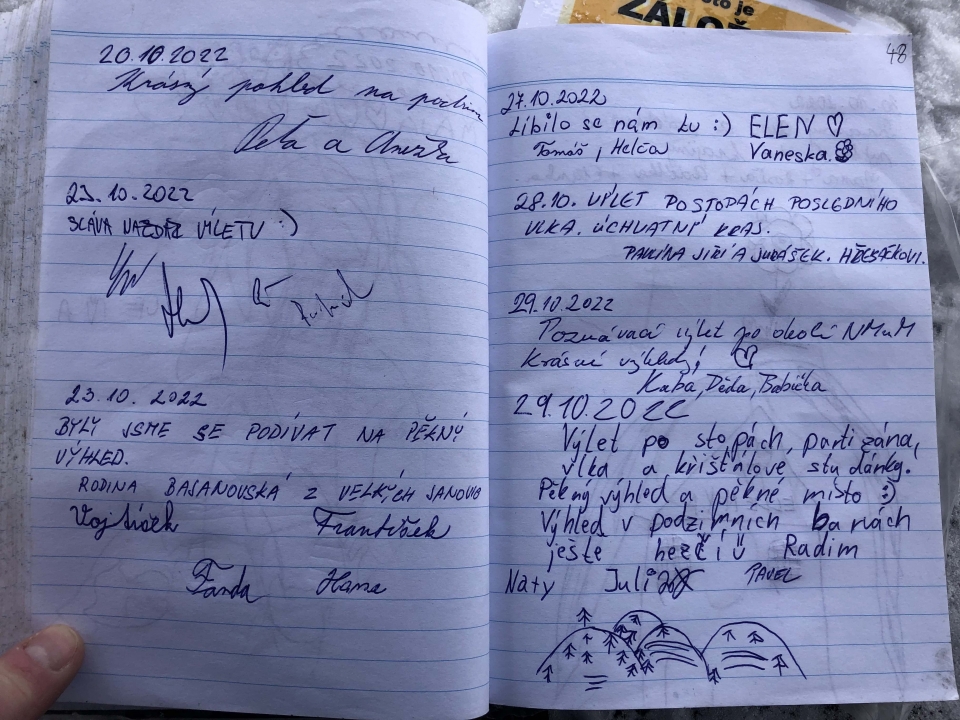 20.10.2022
Krásný pohled na podzim
Peťa a Anežka
23.10.2022
SLÁVA NAZDAR VÝLETU :)
23.10.2022
BYLY JSME SE PODÍVAT NA PĚKNÝ
VÝHLED.
RODINA BASANOVSKÁ Z VELKÝCH JANOVIC
Vojtíšek František
Fanda Hana
to je
ZÁLOŽ
48
27.10.2022
Líbilo se nám tu :) ELEN ♡
Tomáš, Helča Vaneska.
28.10. VÝLET PO STOPÁCH POSLEDNÍHO
VLKA. ÚCHVATNÝ KRAS.
PAVLÍNA JIŘÍ A JURÁŠEK.
29.10.2022
Poznávací výlet po okolí NMnM
Krásné výhledy! ♡
Kuba, Děda, Babička
29.10.2022
Výlet po stopách, partizána,
vlka a křišťálové studánky.
Pěkný výhled a pěkné místo :)
Výhled v podzimních barvách
ješte hezčíü Radim
Naty Juli PAVEL